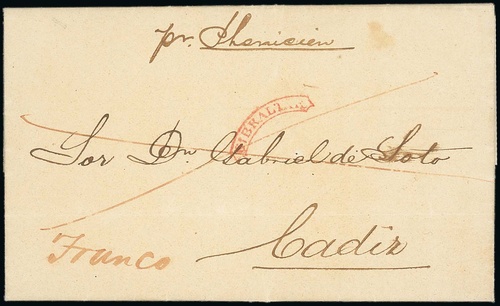 pr. Phenicien
GIBRALTAR
Sor Dn. Gabriel de Soto
Cadiz
Franco